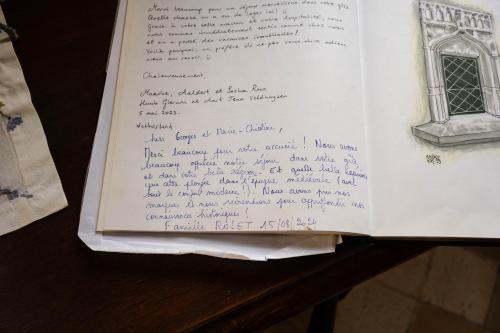 Merci beaucoup pour un séjour merveilleux dans votre gîte.
Quelle chance on a eu de loger ici!
Grâce à votre belle maison et votre hospitalité, nous
nous sommes immédiatement sentis comme chez nous
et on a passé des vacances inoubliables!
Voilà pourquoi, on préfère de ne pas vous dire adieu
mais au revoir.
Chaleureusement,
Maaike, Aaldert et Pascha
et Aart Jena Veldhuyzen
5 mai 2023.
Netherland
Chers Georges et Marie-Christine,
Merci beaucoup pour votre accueil! Nous avons
beaucoup apprécié notre séjour dans votre gîte
et dans votre belle région. Et quelle belle
que cette plongée dans l'époque médiévale (avec
tout le confort moderne!). Nous avons pris nos
marques et nous reviendrons pour approfondir nos
connaissances historiques!
Famille ROLET 15/08/2024